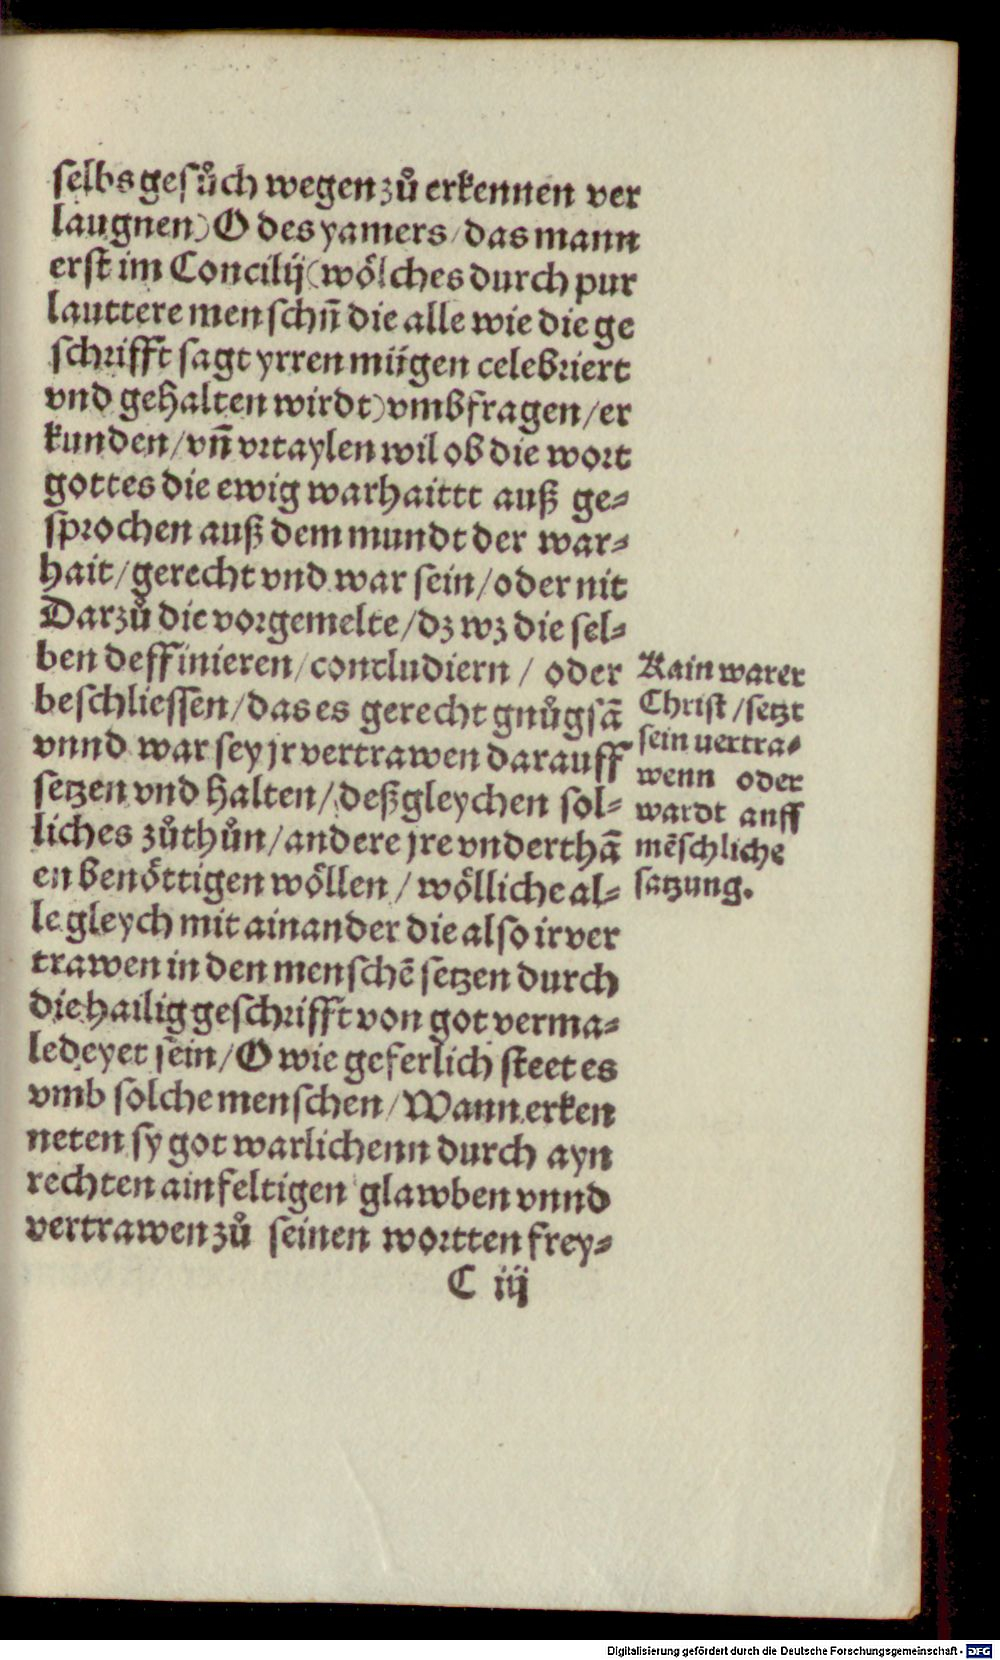 selbs gesůch wegen zů erkennen ver
laugnen) O des yamers / das mann
erst im Concilij (wölches durch pur
lauttere menschñ die alle wie die ge
schrifft sagt yrren mügen celebriert
vnd gehalten wirdt) vmbfragen / er
kunden / vñ vrtaylen wil ob die wort
gottes die ewig warhaittt auß ge⸗
sprochen auß dem mundt der war⸗
hait / gerecht vnd war sein / oder nit
Darzů die vorgemelte / dz wz die sel⸗
ben deffinieren / concludiern / oder
beschliessen / das es gerecht gnůgsã
vnnd war sey jr vertrawen darauff
setzen vnd halten / deßgleychen sol⸗
liches zůthůn / andere jre vnderthã
en benöttigen wöllen / wölliche al⸗
le gleych mit ainander die also ir ver
trawen in den menschẽ setzen durch
die hailig geschrifft von got verma⸗
ledeyet sein / O wie geferlich steet es
vmb solche menschen / Wann erken
neten sy got warlichenn durch ayn
rechten ainfeltigen glawben vnnd
vertrawen zů seinen wortten frey⸗
C iij
Kain warer
Christ / setzt
sein uertra⸗
wenn oder
wardt auff
mẽschliche
satzung.
Digitalisierung gefördert durch die Deutsche Forschungsgemeinschaft - DFG